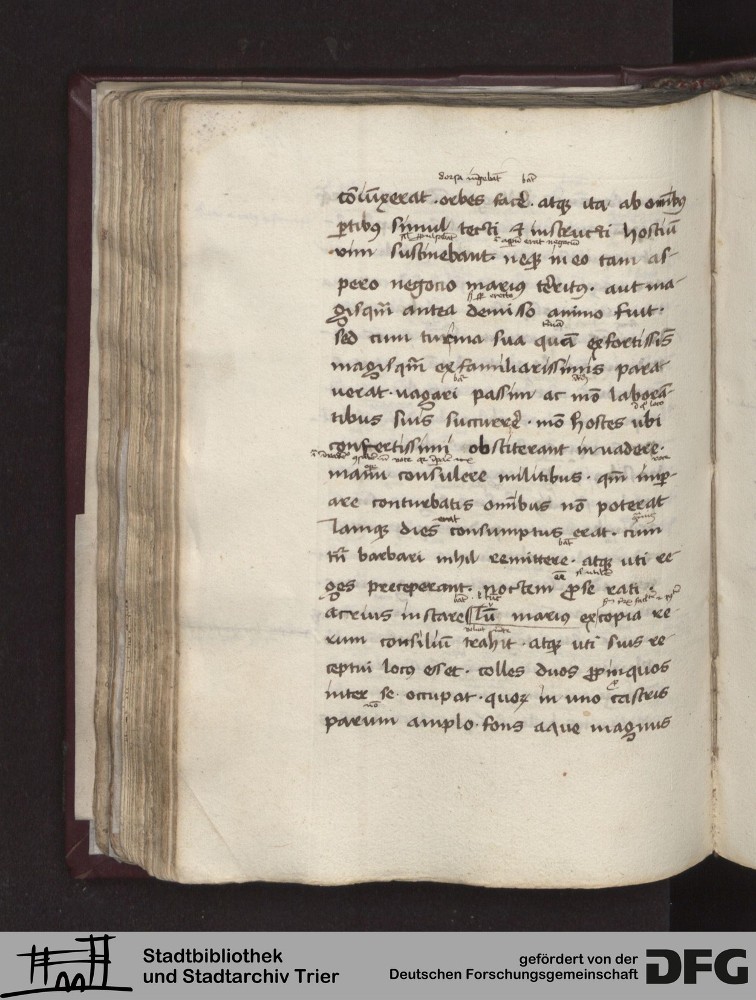 dorsa iungebāt baꝛ̄
cōiūxerat · orbes facē͛ · atqꝫ ita ab omībꝫ
ꝑtibꝫ simul tecti & instructi hostiū
vim sustinebant neqꝫ in eo tam as-
pero negocio marius tēritꝫ · aut ma-
gisqm̄ antea demisso animo fuit ·
sed cum turma sua quā ex fortissīs
magisqm̄ ex familiarissimis para-
uerat · vagari passim ac mō laborā-
tibus suis succurrē͛ · mō hostes ubi
confertissimi obstiterant inuadere ·
manu consulere militibus · qm̄ imꝑ-
are conturbatis omībus nō poterat
Iamqꝫ dies consumptus erat · cum
tn̄ barbari nihil remittere · atqꝫ uti re-
ges preceperant · noctem ꝓ se rati ·
acrius instare Tū marius ex copia re-
rum consiliū trahit · atqꝫ uti suis re-
ceptui locꝫ esset · colles duos ꝓpinquos
inter se occupat · quoꝝ in uno castris
parum amplo · fons aque magnus
Stadtbibliothek
und Stadtarchiv Trier
gefördert von der
Deutschen Forschungsgemeinschaft
DFG